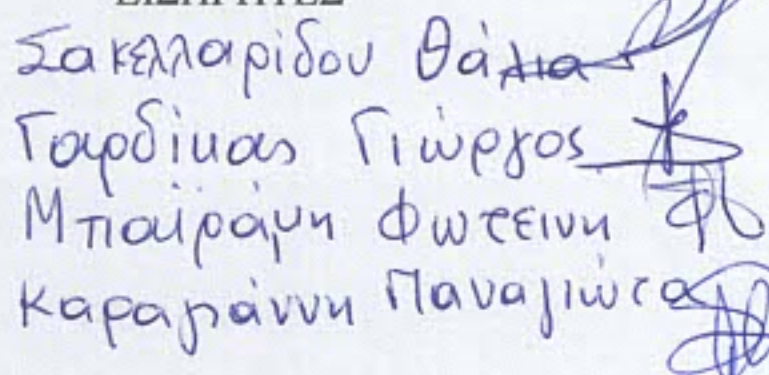 ΕΙΣΗΓΗΤΕΣ
Σακελλαρίδου Θάλια
Γαρδίκας Γιώργος
Μπαϊράμη Φωτεινη
Καραγιάννη Παναγιώτα